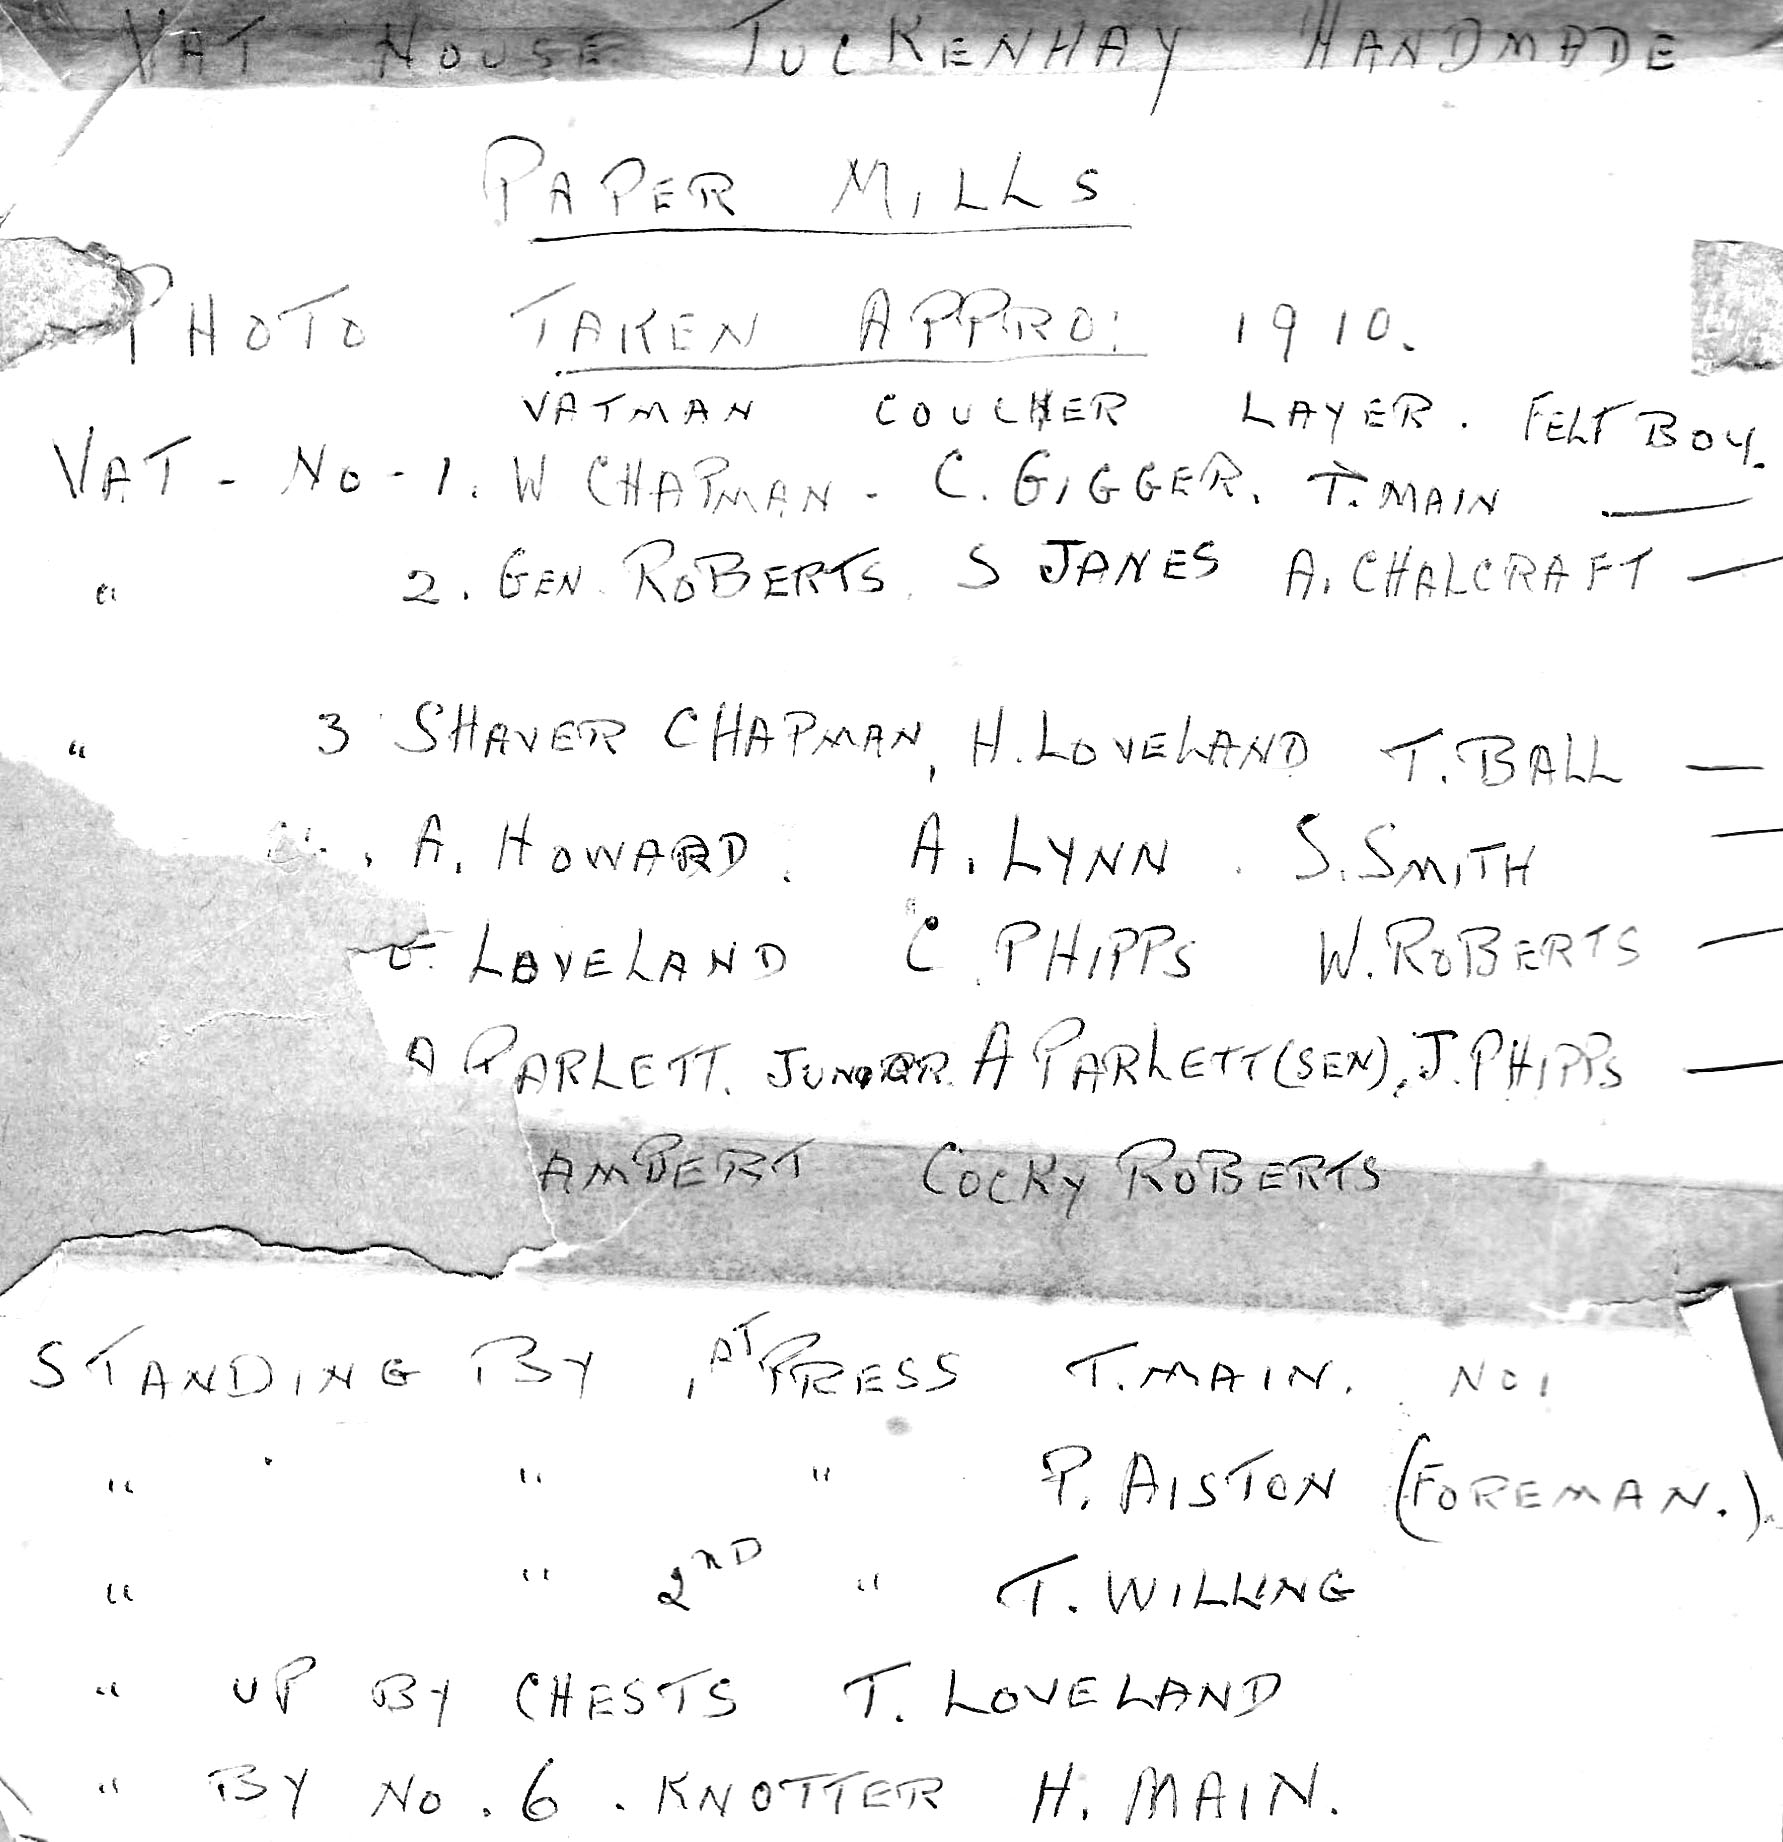 VAT HOUSE TUCKENHAY HANDMADE
PAPER MILLS
PHOTO TAKEN APPRO: 1910.
VATMAN COUCHER LAYER. FELT BOY.
VAT - No - 1. W CHAPMAN - C. GIGGER. T. MAIN —
" 2. GEN. ROBERTS. S JANES A. CHALCRAFT —
" 3 SHAVER CHAPMAN, H. LOVELAND T. BALL —
. A. HOWARD. A. LYNN. S. SMITH —
LOVELAND C. PHIPPS W. ROBERTS —
A PARLETT. JUNIOR. A PARLETT (SEN), J. PHIPPS —
AMBERT COCKY ROBERTS
STANDING BY, AT PRESS T. MAIN. NO1
" " " P. AISTON (FOREMAN.)
" " 2ND " T. WILLING
" UP BY CHESTS T. LOVELAND
" BY No. 6. KNOTTER H. MAIN.